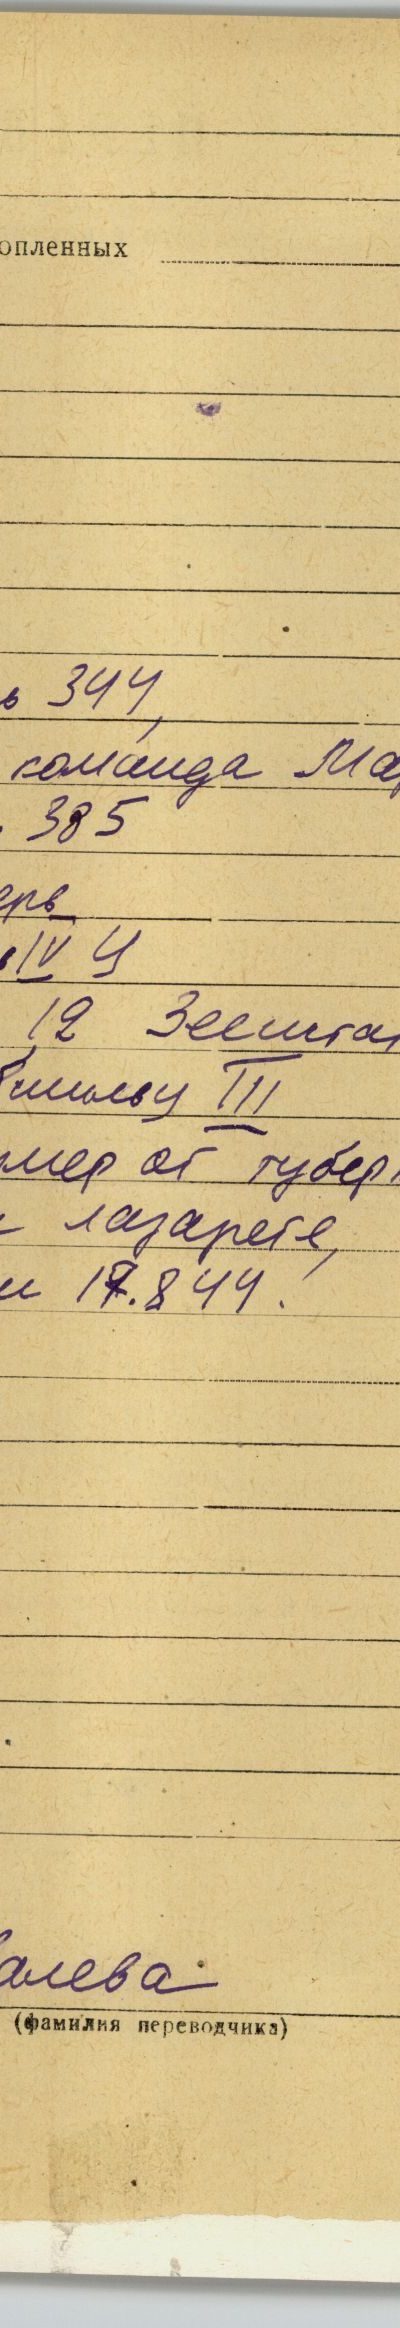 опленных
ь 344,
команда Ма
. 385
ерь
IV Ц
12 Зеешта
III
мер от тубер
лазарете,
и 17.8 44.
алева
(фамилия переводчика)